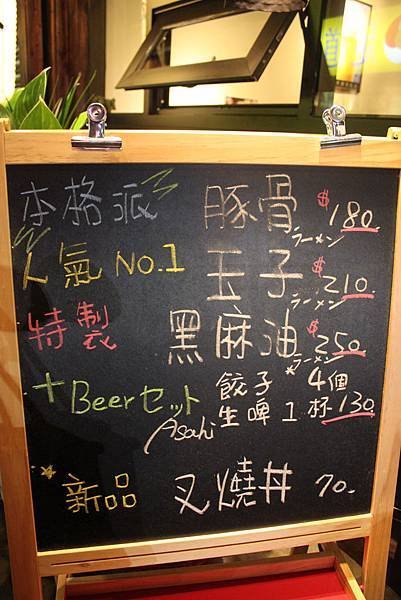 本格派 豚骨ラーメン $180
人氣 NO.1 玉子ラーメン $210
特製 黑麻油ラーメン $250
+Beerセット 餃子 4個
Asahi 生啤 1 杯 130
新品 叉燒丼 70.